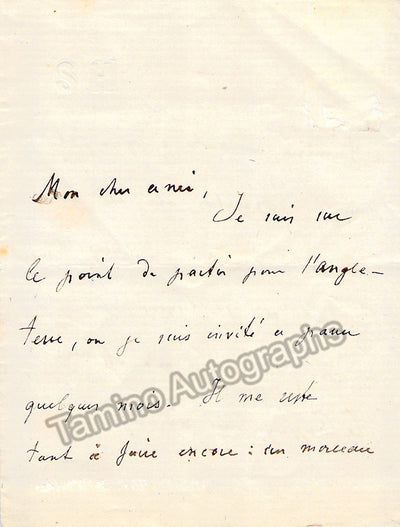 Mon cher ami,
Je suis sur
le point de partir pour l'angle-
terre, où je suis invité a passer
quelques mois. Il me reste
tant à faire encore : un morceau
Tamino Autographs